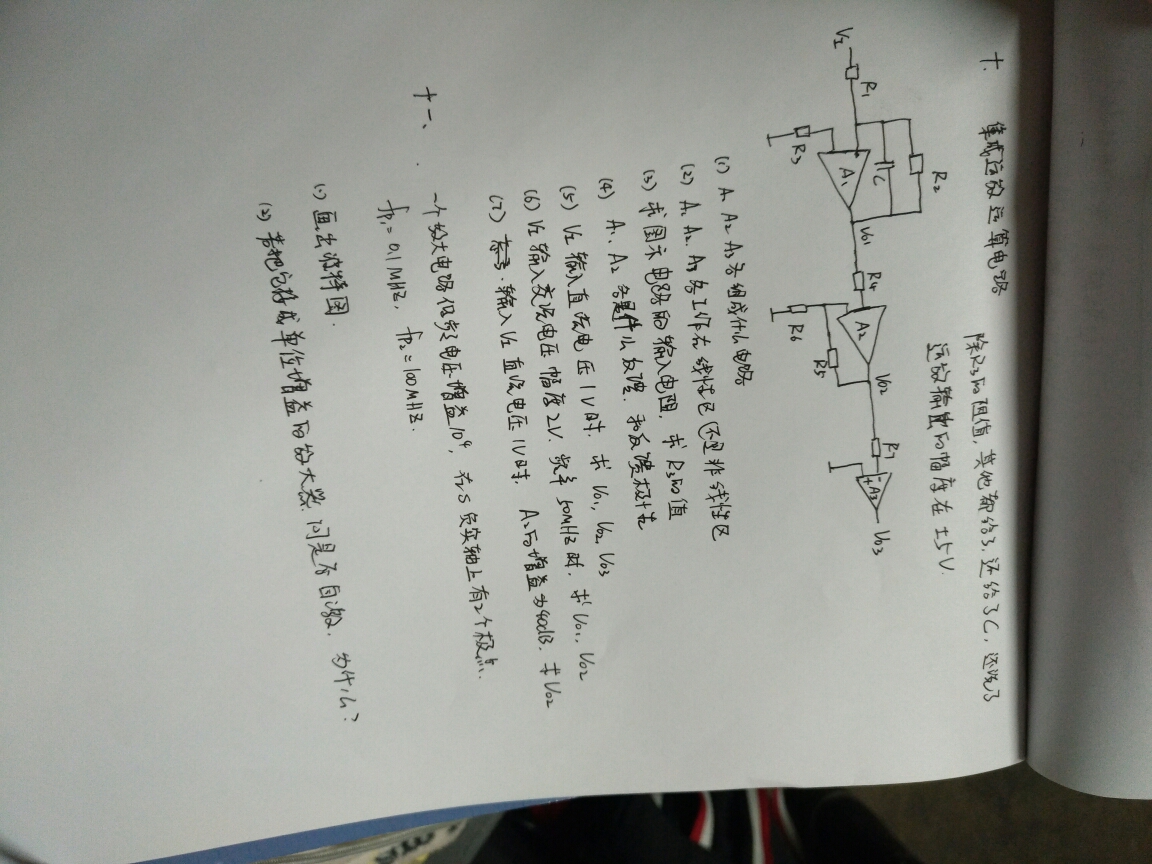 十. 集成运放运算电路
除R3的阻值, 其他都给了, 还给了C, 还说了
运放输出的幅度在 ±5V.
VI R1 R2 C R3 A1 Vo1 R4 A2 R6 R5 Vo2 R7 - + A3 Vo3
(1) A1 A2 A3各组成什么电路
(2) A1 A2、A3各工作在线性区还是非线性区
(3) 求图示电路的输入电阻, 求R3的值
(4) A1、A2各是什么反馈. 和反馈极性
(5) VI 输入直流电压1V时. 求 Vo1, Vo2, Vo3
(6) VI 输入交流电压幅度2V. 频率50MHz时. 求Vo1, Vo2
(7) 输入VI 直流电压1V时. A1的增益为40dB. 求Vo2
十一、
一个放大电路低频电压增益10⁴, 在S负实轴上有2个极点.
fp1=0.1MHz, fp2=100MHz.
(1) 画出波特图.
(2) 若把它接成单位增益的放大器, 问是否自激. 为什么?